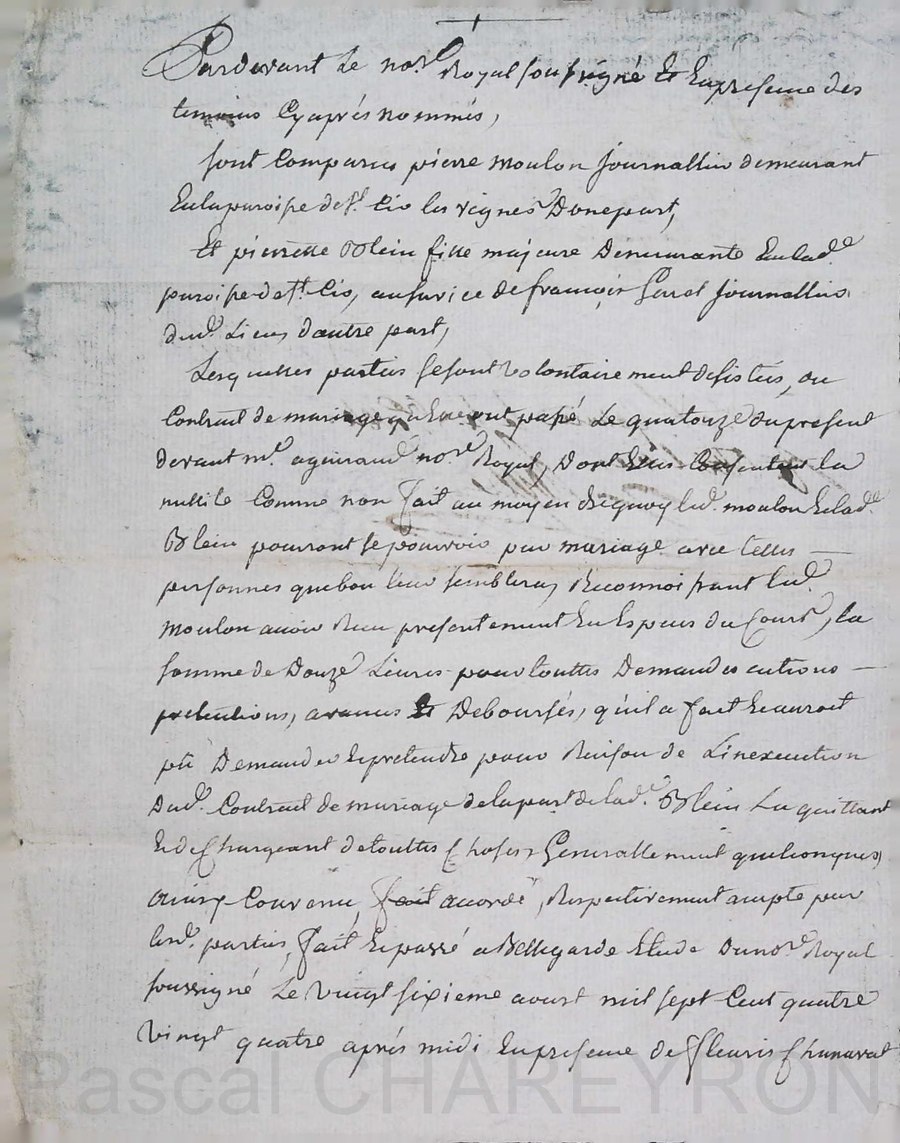 Pardevant Le no.re Royal soussigné Et En presence des
temoins Cyaprés nommés,
sont Comparus pierre moulon Journallier demeurant
En la paroisse de s.t Cir les vignes D'une part,
Et pierrette Blein fille majeure Demeurante En lad.e
paroisse de s.t Cir, au service de francois Journallier
dud.t Lieu d'autre part,
Lesquelles parties se sont volontairement desistées, du
Contrat de mariage qu'elles ont passé Le quatorze du present
devant m.e no.re Royal, Dont Elles Consentent la
nullité Comme non fait au moyen dequoy led.t moulon Et lad.e
Blein pourront se pourvoir par mariage avec telles
personnes que bon leur semblera, Reconnoissant led.t
moulon avoir Reçu presentement En Especes du Cours, la
somme de Douze Livres pour touttes Demandes actions
pretentions, avances Et Deboursés, qu'il a fait Et auroit
pû Demander Et pretendre pour Raison de L'inexecution
Dud.t Contrat de mariage de la part de lad.e Blein La quittant
Et dechargeant de touttes choses Generallement quelconques,
ainsy Convenu, fait accordé, Respectivement accepté par
lesd. parties, fait Et passé a Bellegarde Etude Du no.re Royal
soussigné Le vingt sixieme aoust mil sept Cent quatre
vingt quatre aprés midi En presence de fleuris Chanavat
Pascal CHAREYRON